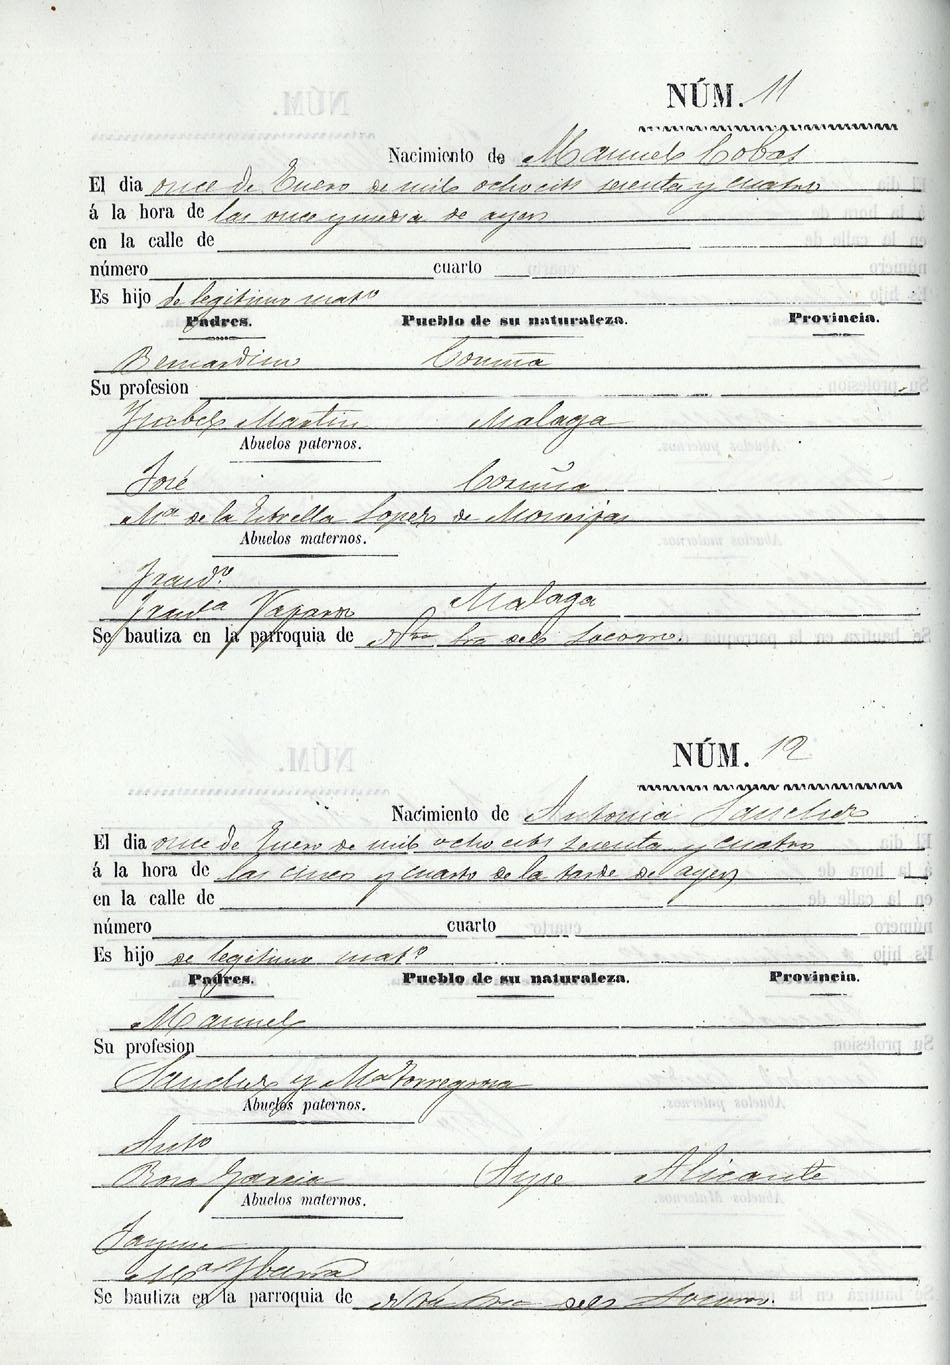 NÚM. 11
Nacimiento de Manuel Cobos
El dia once de Enero de mil ochocits sesenta y cuatro
á la hora de las once y media de ayer
en la calle de
número cuarto
Es hijo de legitimo mato
Padres. Pueblo de su naturaleza. Provincia.
Bernardino Coruña
Su profesion
Ysabel Martin Malaga
Abuelos paternos.
José Coruña
Ma de la Estrella Lopez de
Abuelos maternos.
Málaga
Se bautiza en la parroquia de Ntra Sra del Socorro.
NÚM. 12
Nacimiento de Antonia Sanchez
El dia once de Enero de mil ochocits sesenta y cuatro
á la hora de las cinco y cuarto de la tarde de ayer
en la calle de
número cuarto
Es hijo de legitimo mato
Padres. Pueblo de su naturaleza. Provincia.
Manuel
Su profesion
Sanchez y Ma Torregrosa
Abuelos paternos.
Anto
Rosa Garcia Aspe Alicante
Abuelos maternos.
Jayme
Ma Ybarra
Se bautiza en la parroquia de Ntra Sra del Socorro.